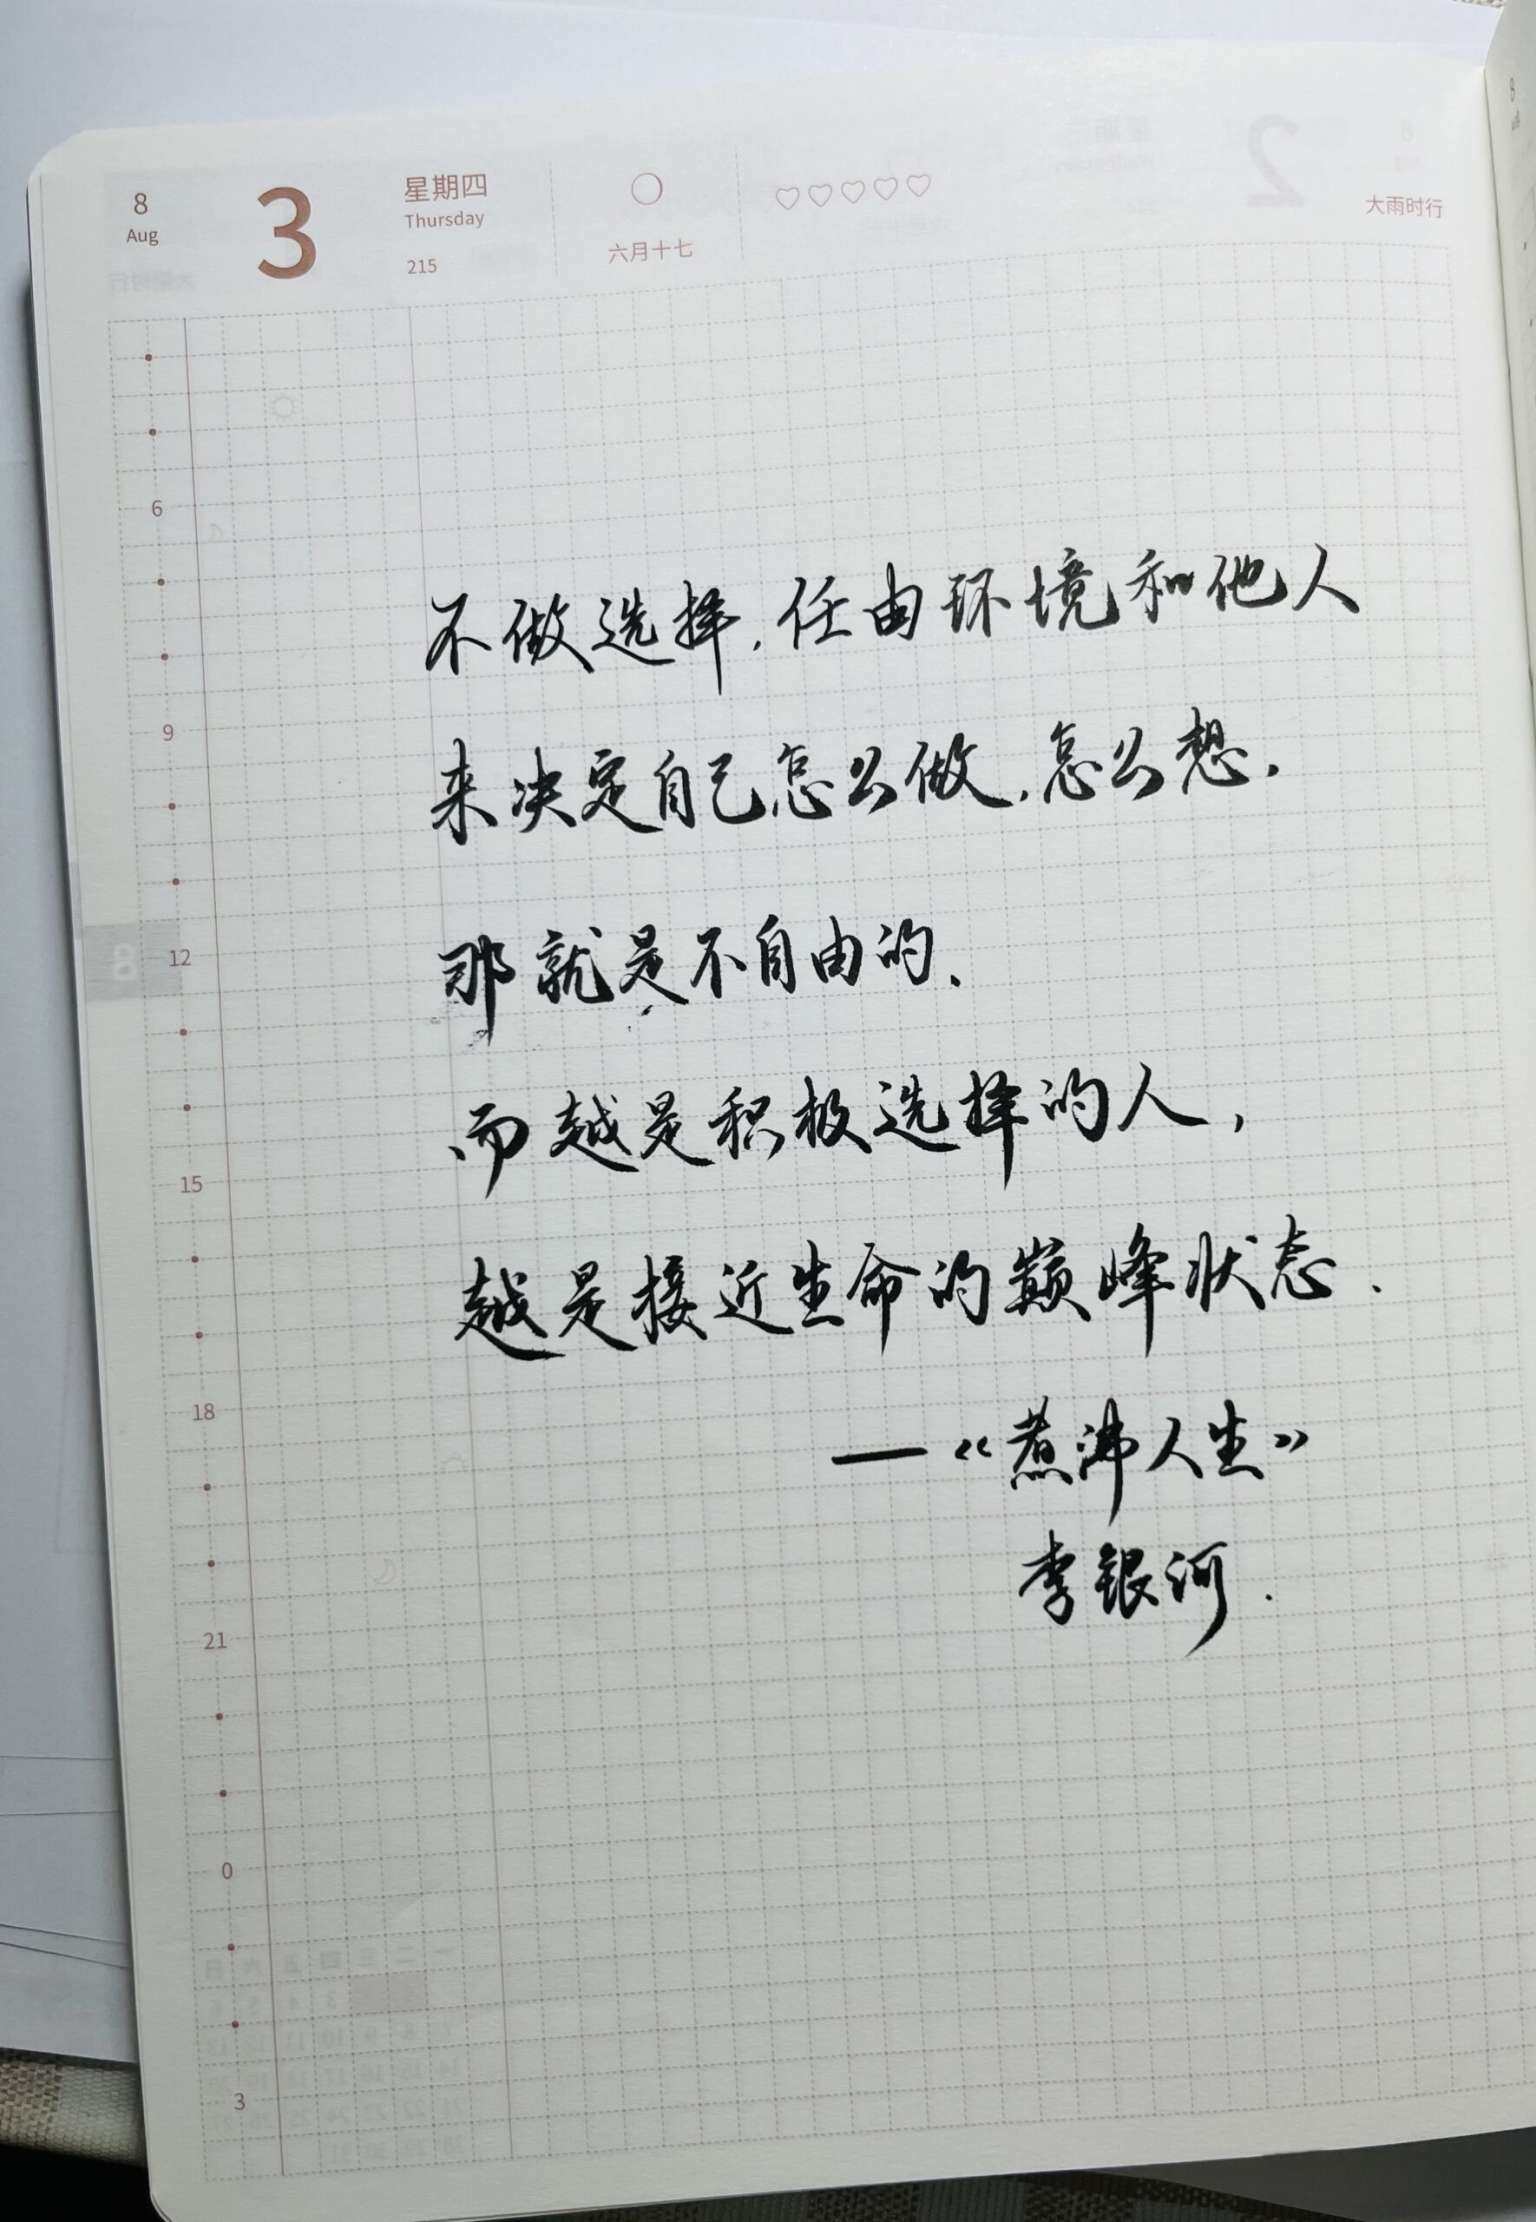 8
Aug
3
星期四
Thursday
215
六月十七
大雨时行
6
不做选择，任由环境和他人
9
来决定自己怎么做，怎么想，
8
12
那就是不自由的，
而越是积极选择的人，
15
越是接近生命的巅峰状态.
18
—《煮沸人生》
李银河.
21
0
3